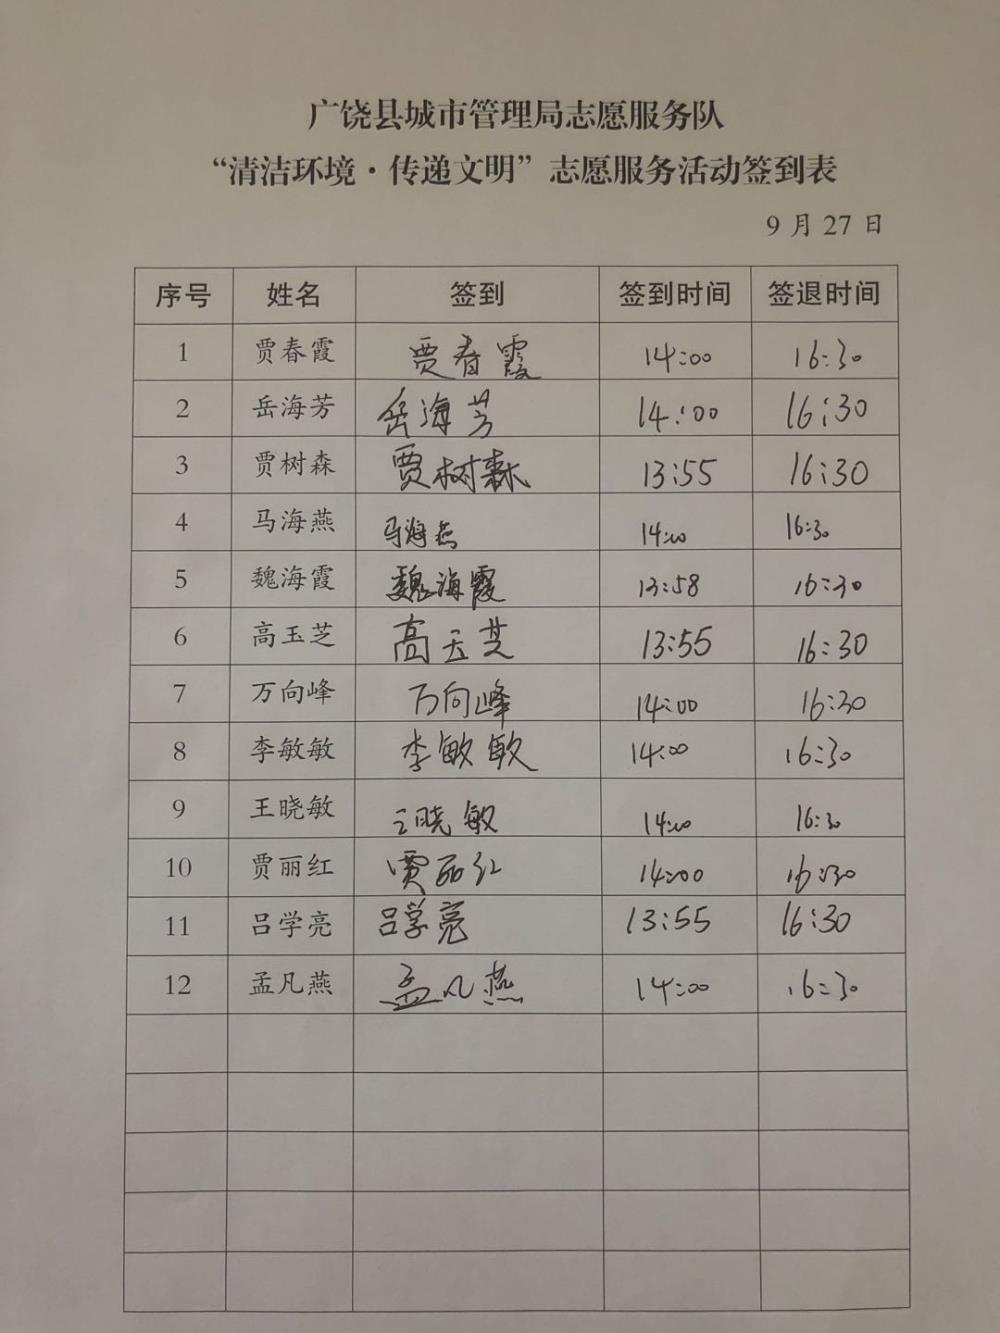 广饶县城市管理局志愿服务队
“清洁环境·传递文明”志愿服务活动签到表
9 月 27 日
序号 姓名 签到 签到时间 签退时间
1 贾春霞 贾春霞 14:00 16:30
2 岳海芳 岳海芳 14:00 16:30
3 贾树森 贾树森 13:55 16:30
4 马海燕 马海燕 14:00 16:30
5 魏海霞 魏海霞 13:58 16:30
6 高玉芝 高玉芝 13:55 16:30
7 万向峰 万向峰 14:00 16:30
8 李敏敏 李敏敏 14:00 16:30
9 王晓敏 王晓敏 14:00 16:30
10 贾丽红 贾丽红 14:00 16:30
11 吕学亮 吕学亮 13:55 16:30
12 孟凡燕 孟凡燕 14:00 16:30